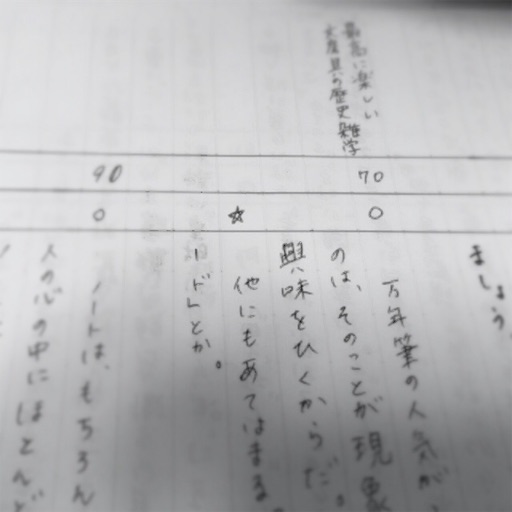 最高に楽しい
文房具の歴史雑学
70
90
○
☆
○
ましょう。
万年筆の人気が
のは、そのことが現象
興味をひくからだ。
他にもあてはまる
ード」とか。
ノートは、もちろん
人の心の中にほとんど